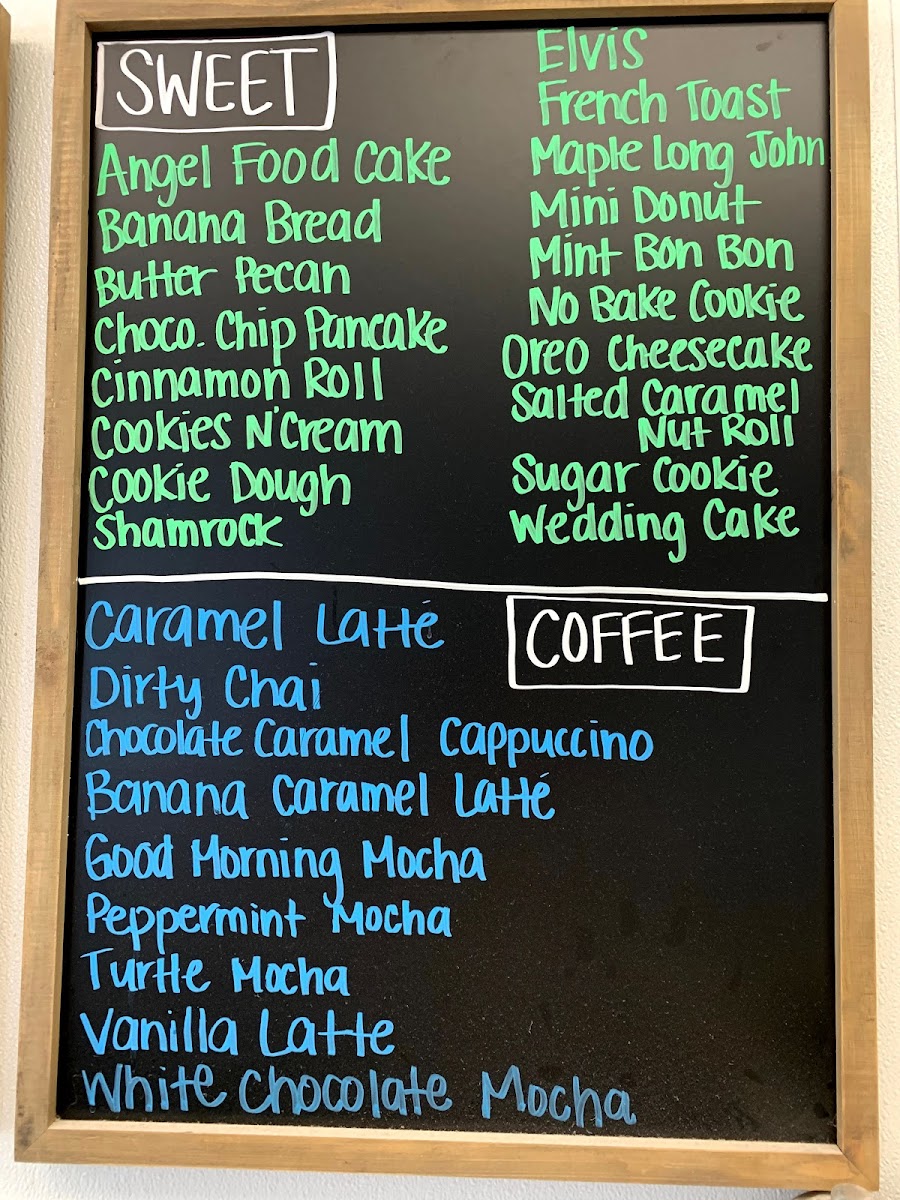 SWEET
Angel Food Cake
Banana Bread
Butter Pecan
Choco. Chip Pancake
Cinnamon Roll
Cookies N'Cream
Cookie Dough
Shamrock
Elvis
French Toast
Maple Long John
Mini Donut
Mint Bon Bon
No Bake Cookie
Oreo Cheesecake
Salted Caramel
Nut Roll
Sugar Cookie
Wedding Cake
COFFEE
Caramel Latté
Dirty Chai
Chocolate Caramel Cappuccino
Banana Caramel Latté
Good Morning Mocha
Peppermint Mocha
Turtle Mocha
Vanilla Latte
White Chocolate Mocha